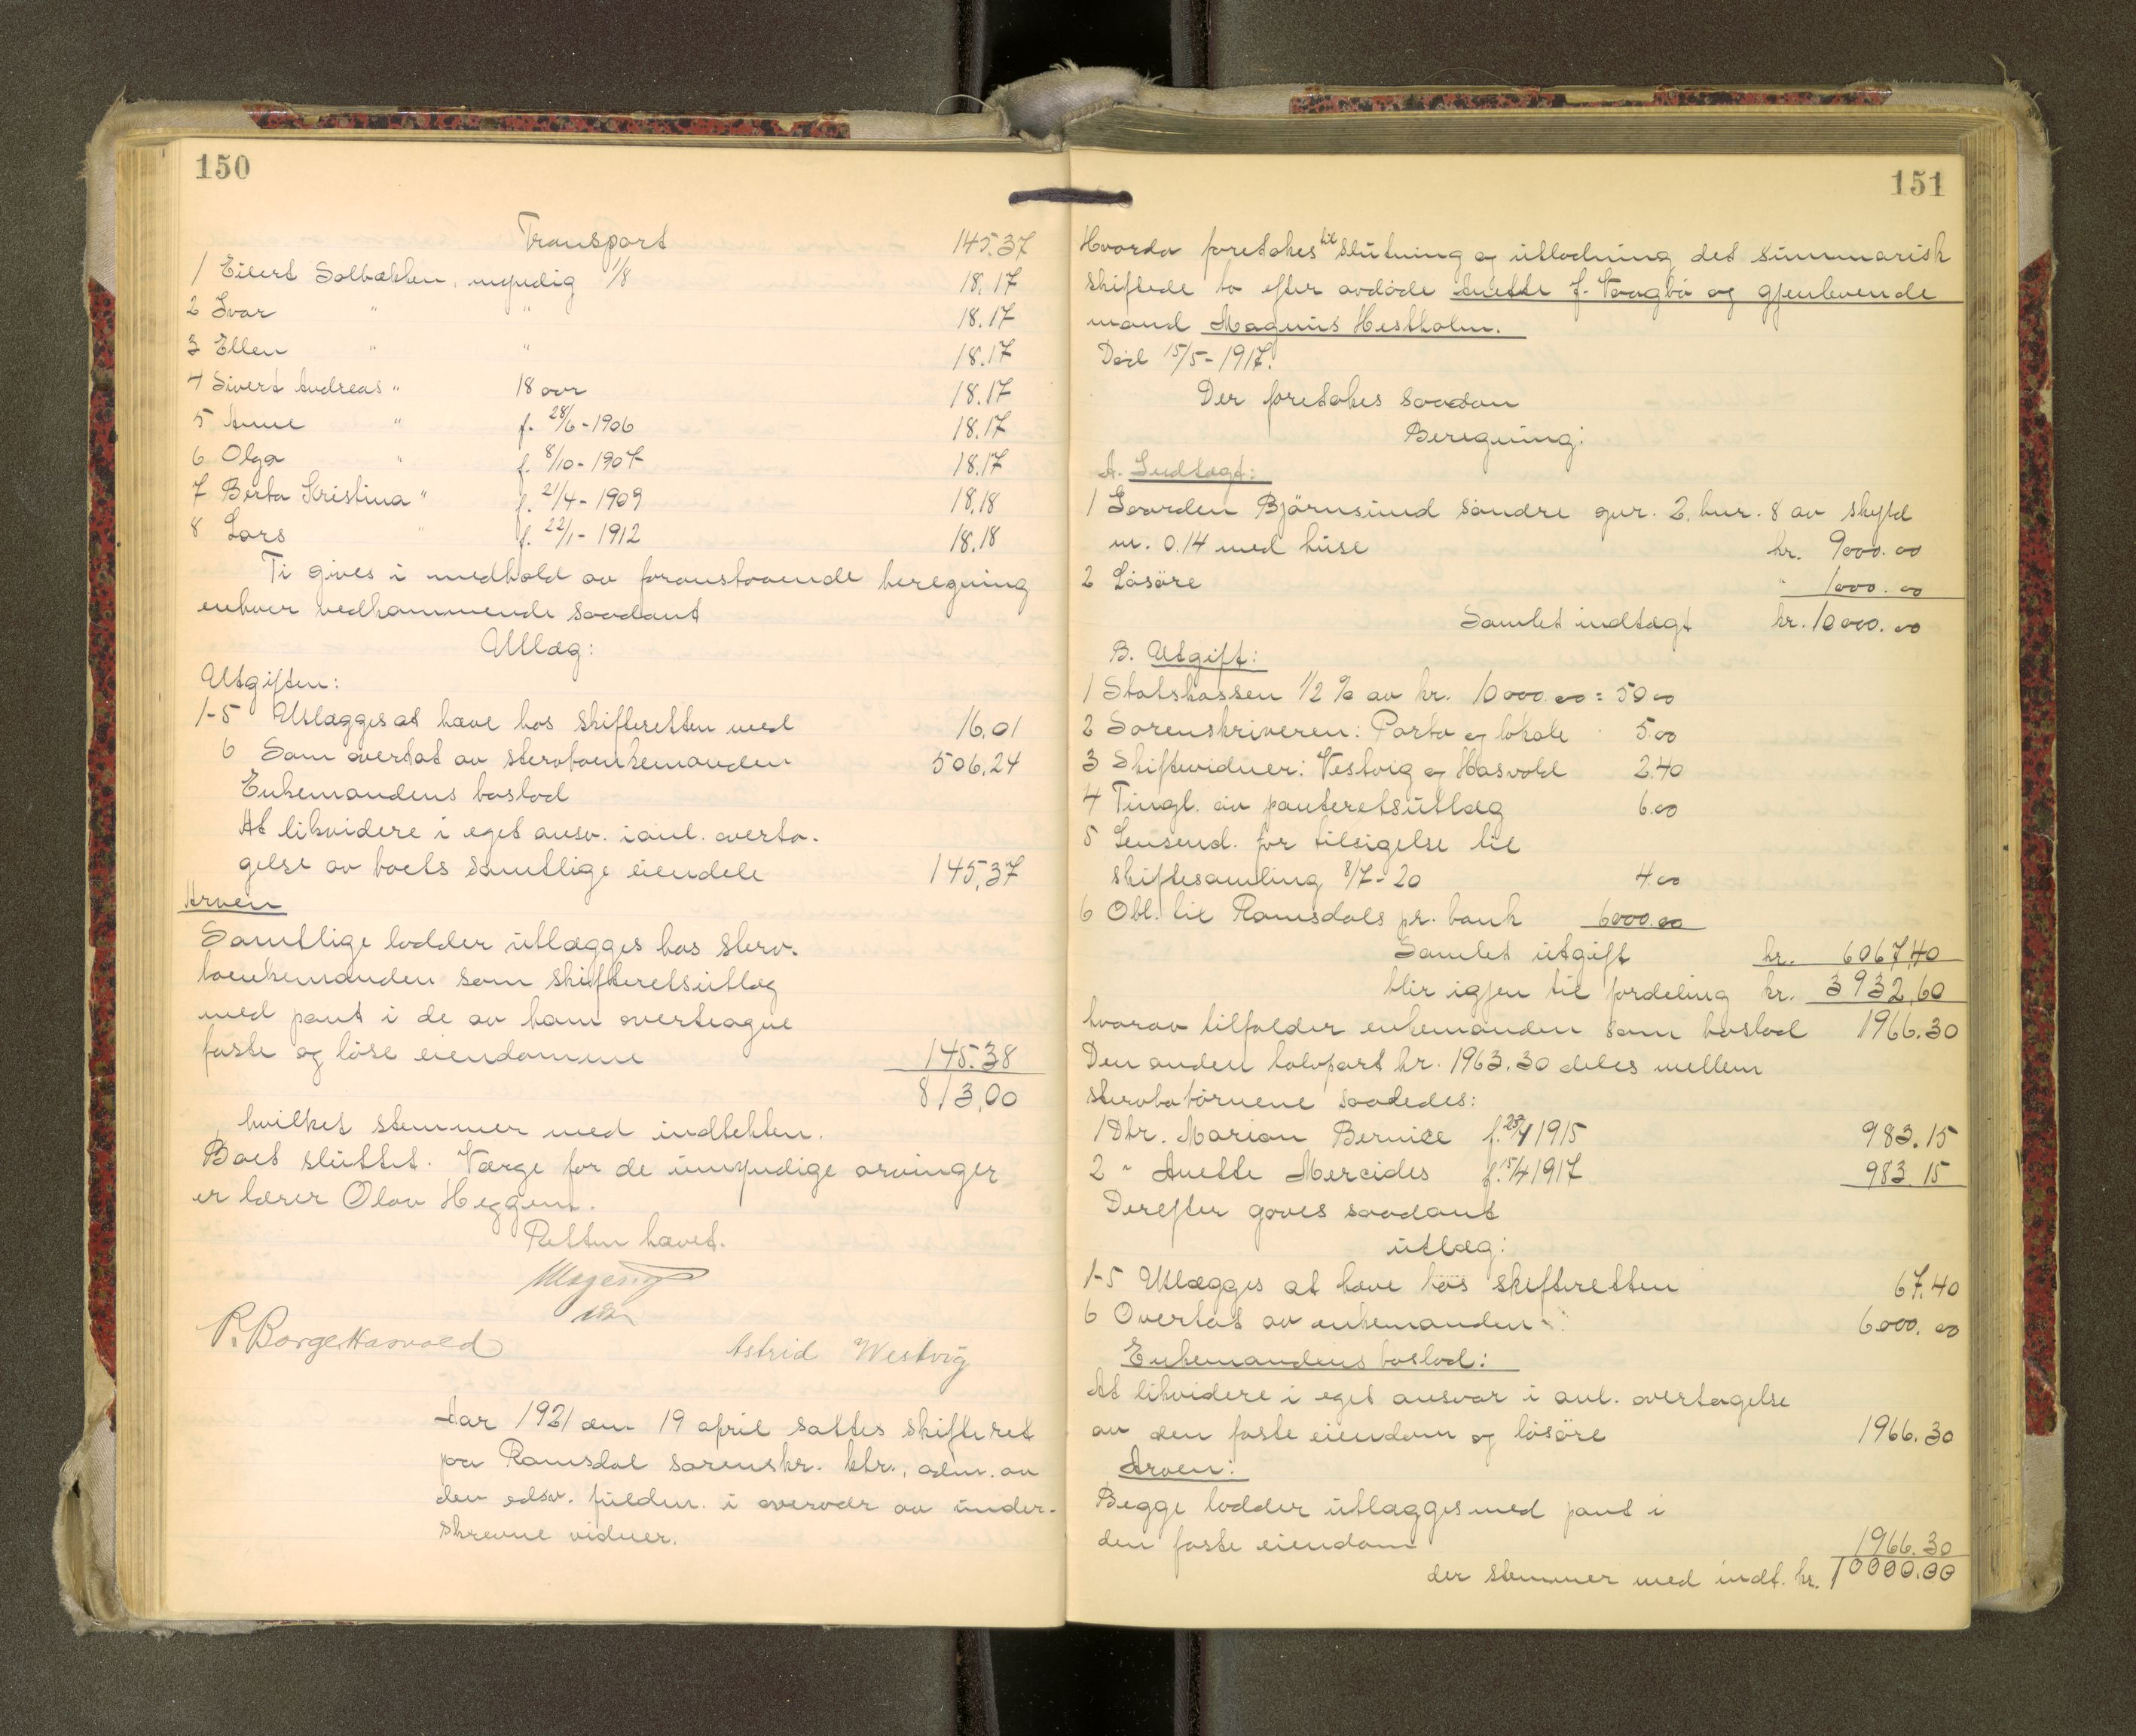 150
Transport 145.37
1 Eilert Solbækken, myndig 1/8 18.17
2 Ivar " " 18.17
3 Ellen " " 18.17
4 Sivert Andreas " 18 aar 18.17
5 Anne " f. 28/6-1906 18.17
6 Olga " f. 8/10-1907 18.17
7 Berta Kristina " f. 21/4-1909 18.18
8 Lars " f. 22/1-1912 18.18
Ti gives i medhold av foranstaaende beregning
enhver vedkommende saadant
Utlæg:
Utgiften:
1-5 Utlægges at hæve hos skifteretten med 16.01
6 Som overtat av stervboenkemanden 506.24
Enkemandens boslod
At likvidere i eget ansv. i anl. overta-
gelse av boets samtlige eiendele 145.37
Arven
Samtlige lodder utlægges hos sterv-
boenkemanden som skifteretsutlæg
med pant i de av ham overtagne
faste og løse eiendomme 145.38
813.00
hvilket stemmer med indtekten.
Boet sluttet. Værge for de umyndige arvinger
er lærer Olav Heggem.
Retten hævet.
P. Borge Hasvold Astrid Westvig
Aar 1921 den 19 april sattes skifteret
paa Romsdal sorenskr. ktr., adm. av
den edsv. fuldm. i overvær av under-
skrevne vidner.
151
Hvorda foretokes til slutning og utlodning det summarisk
skiftede bo efter avdøde Anette f. Vaagbø og gjenlevende
mand Magnus Hestholm.
Død 15/5-1917.
Der foretokes saadan
Beregning:
A. Indtægt:
1 Gaarden Bjørnsund søndre gnr. 2, bnr. 8 av skyld
m. 0.14 med huse kr. 9000.00
2 Løsøre " 1000.00
Samlet indtægt kr. 10000.00
B. Utgift:
1 Statskassen 1/2 % av kr. 10000.00 = 50.00
2 Sorenskriveren: Porto og lokale 5.00
3 Skiftevidner: Vestvig og Hasvold 2.40
4 Tingl. av panteretsutlæg 6.00
5 Lensmd. for tilsigelse til
skiftesamling 8/7-20 4.00
6 Obl. til Romsdals pr. bank 6000.00
Samlet utgift kr. 6067.40
blir igjen til fordeling kr. 3932.60
hvorav tilfalder enkemanden som boslod 1966.30
Den anden halvpart kr. 1963.30 deles mellem
stervbobørnene saaledes:
1 Dtr. Marion Bernice f. 23/1 1915 983.15
2 " Anette Mercides f. 15/4 1917 983.15
Derefter gøves saadant
utlæg:
1-5 Utlægges at hæve hos skifteretten 67.40
6 Overtat av enkemanden 6000.00
Enkemandens boslod:
At likvidere i eget ansvar i anl. overtagelse
av den faste eiendom og løsøre 1966.30
Arven:
Begge lodder utlægges med pant i
den faste eiendom 1966.30
der stemmer med indt. kr. 10000.00